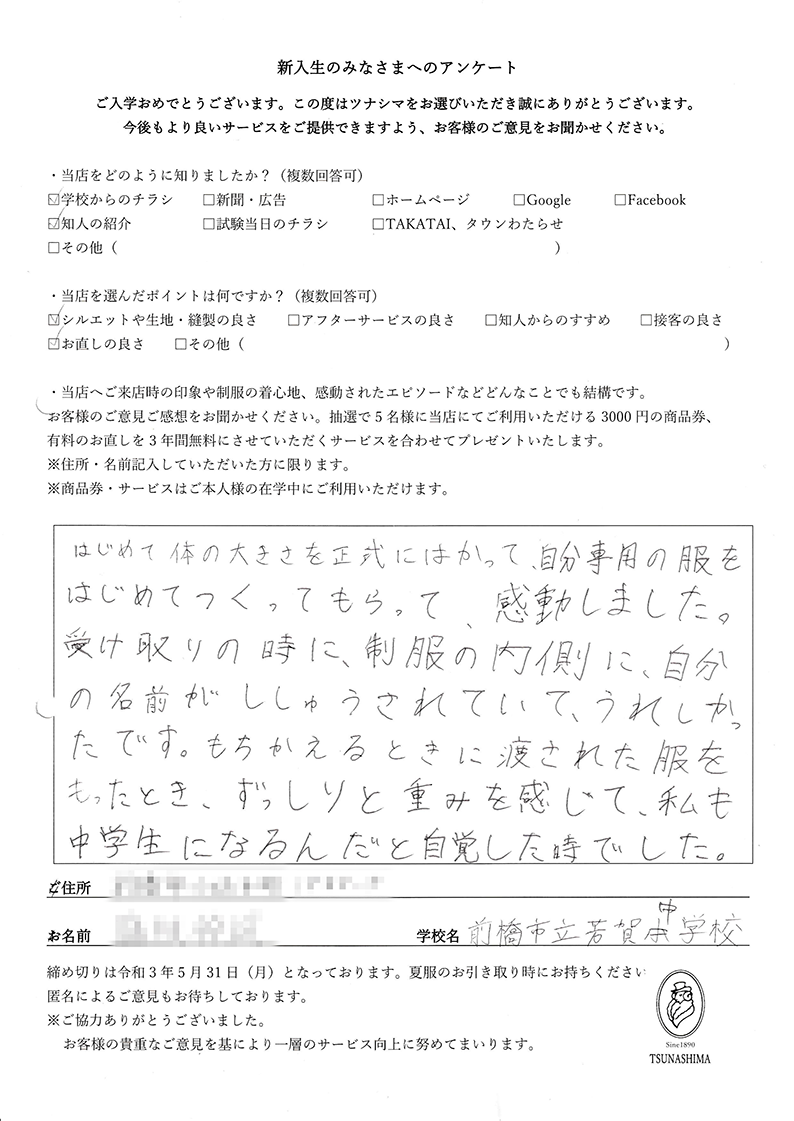 新入生のみなさまへのアンケート
ご入学おめでとうございます。この度はツナシマをお選びいただき誠にありがとうございます。
今後もより良いサービスをご提供できますよう、お客様のご意見をお聞かせください。
・当店をどのように知りましたか？（複数回答可）
☑学校からのチラシ　□新聞・広告　□ホームページ　□Google　□Facebook
☑知人の紹介　□試験当日のチラシ　□TAKATAI、タウンわたらせ
□その他（　）
・当店を選んだポイントは何ですか？（複数回答可）
☑シルエットや生地・縫製の良さ　□アフターサービスの良さ　□知人からのすすめ　□接客の良さ
☑お直しの良さ　□その他（　）
・当店へご来店時の印象や制服の着心地、感動されたエピソードなどどんなことでも結構です。
お客様のご意見ご感想をお聞かせください。抽選で5名様に当店にてご利用いただける3000円の商品券、
有料のお直しを3年間無料にさせていただくサービスを合わせてプレゼントいたします。
※住所・名前記入していただいた方に限ります。
※商品券・サービスはご本人様の在学中にご利用いただけます。
はじめて体の大きさを正式にはかって、自分専用の服を
はじめてつくってもらって、感動しました。
受け取りの時に、制服の内側に、自分
の名前がししゅうされていて、うれしかっ
たです。もちかえるときに渡された服を
もったとき、ずっしりと重みを感じて、私も
中学生になるんだと自覚した時でした。
ご住所
お名前　学校名 前橋市立芳賀中学校
締め切りは令和3年5月31日（月）となっております。夏服のお引き取り時にお持ちください
匿名によるご意見もお待ちしております。
※ご協力ありがとうございました。
お客様の貴重なご意見を基により一層のサービス向上に努めてまいります。
Sine1890
TSUNASHIMA